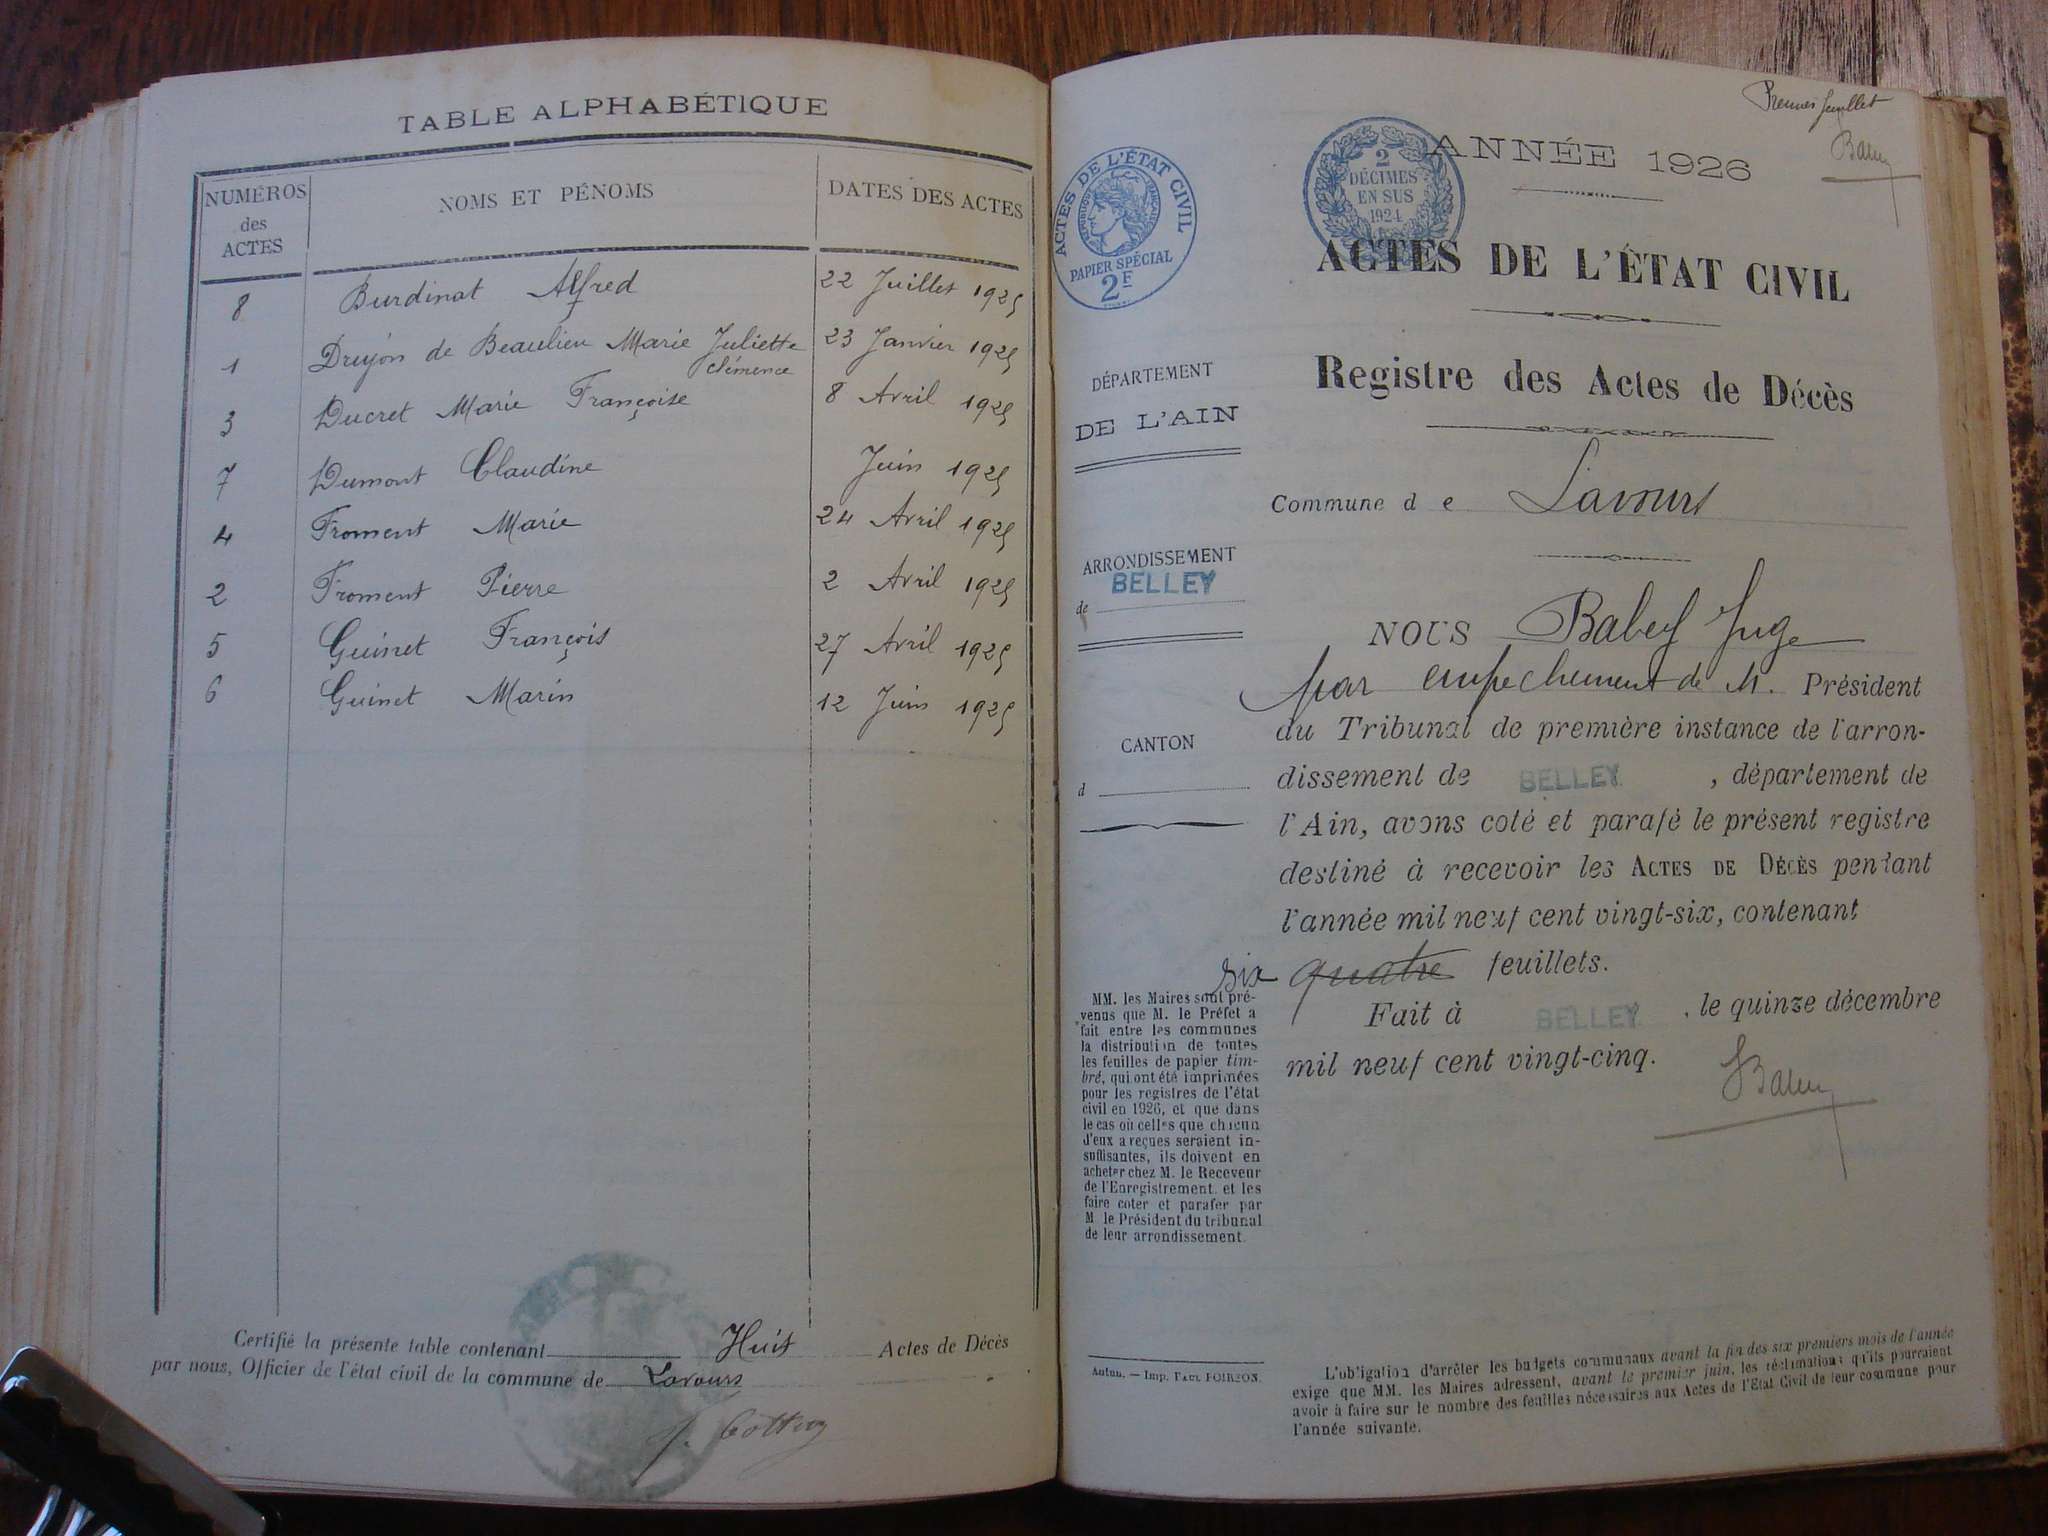 TABLE ALPHABÉTIQUE
NUMÉROS des ACTES NOMS ET PÉNOMS DATES DES ACTES
8 Burdinat Alfred 22 Juillet 1925
1 Drujon de Beaulieu Marie Juliette clémence 23 Janvier 1925
3 Ducret Marie Françoise 8 Avril 1925
7 Dumont Claudine Juin 1925
4 Froment Marie 24 Avril 1925
2 Froment Pierre 2 Avril 1925
5 Guinet François 27 Avril 1925
6 Guinet Marin 12 Juin 1925
Certifié la présente table contenant Huit Actes de Décès
par nous, Officier de l'état civil de la commune de Lavours
Premier feuillet
ACTES DE L'ÉTAT CIVIL
RÉPUBLIQUE FRANÇAISE
PAPIER SPÉCIAL
2F
2
DÉCIMES
EN SUS
1924
ANNÉE 1926
ACTES DE L'ÉTAT CIVIL
Registre des Actes de Décès
Commune d e Lavours
DÉPARTEMENT
DE L'AIN
ARRONDISSEMENT
de BELLEY
CANTON
d
NOUS Babey Juge
par empechement de M. Président
du Tribunal de première instance de l'arron-
dissement de BELLEY, département de
l'Ain, avons coté et parafé le présent registre
destiné à recevoir les ACTES DE DÉCÈS pendant
l'année mil neuf cent vingt-six, contenant
six quatre feuillets.
Fait à BELLEY, le quinze décembre
mil neuf cent vingt-cinq.
MM. les Maires sont pré-
venus que M. le Préfet a
fait entre les communes
la distribution de toutes
les feuilles de papier tim-
bré, qui ont été imprimées
pour les registres de l'état
civil en 1926, et que dans
le cas où celles que chacun
d'eux a reçues seraient in-
suffisantes, ils doivent en
acheter chez M. le Receveur
de l'Enregistrement et les
faire coter et parafer par
M. le Président du tribunal
de leur arrondissement.
Autun. — Imp. PAUL POIRSON.
L'obligation d'arrêter les budgets communaux avant la fin des six premiers mois de l'année
exige que MM. les Maires adressent, avant le premier juin, les réclamations qu'ils pourraient
avoir à faire sur le nombre des feuilles nécessaires aux Actes de l'Etat Civil de leur commune pour
l'année suivante.